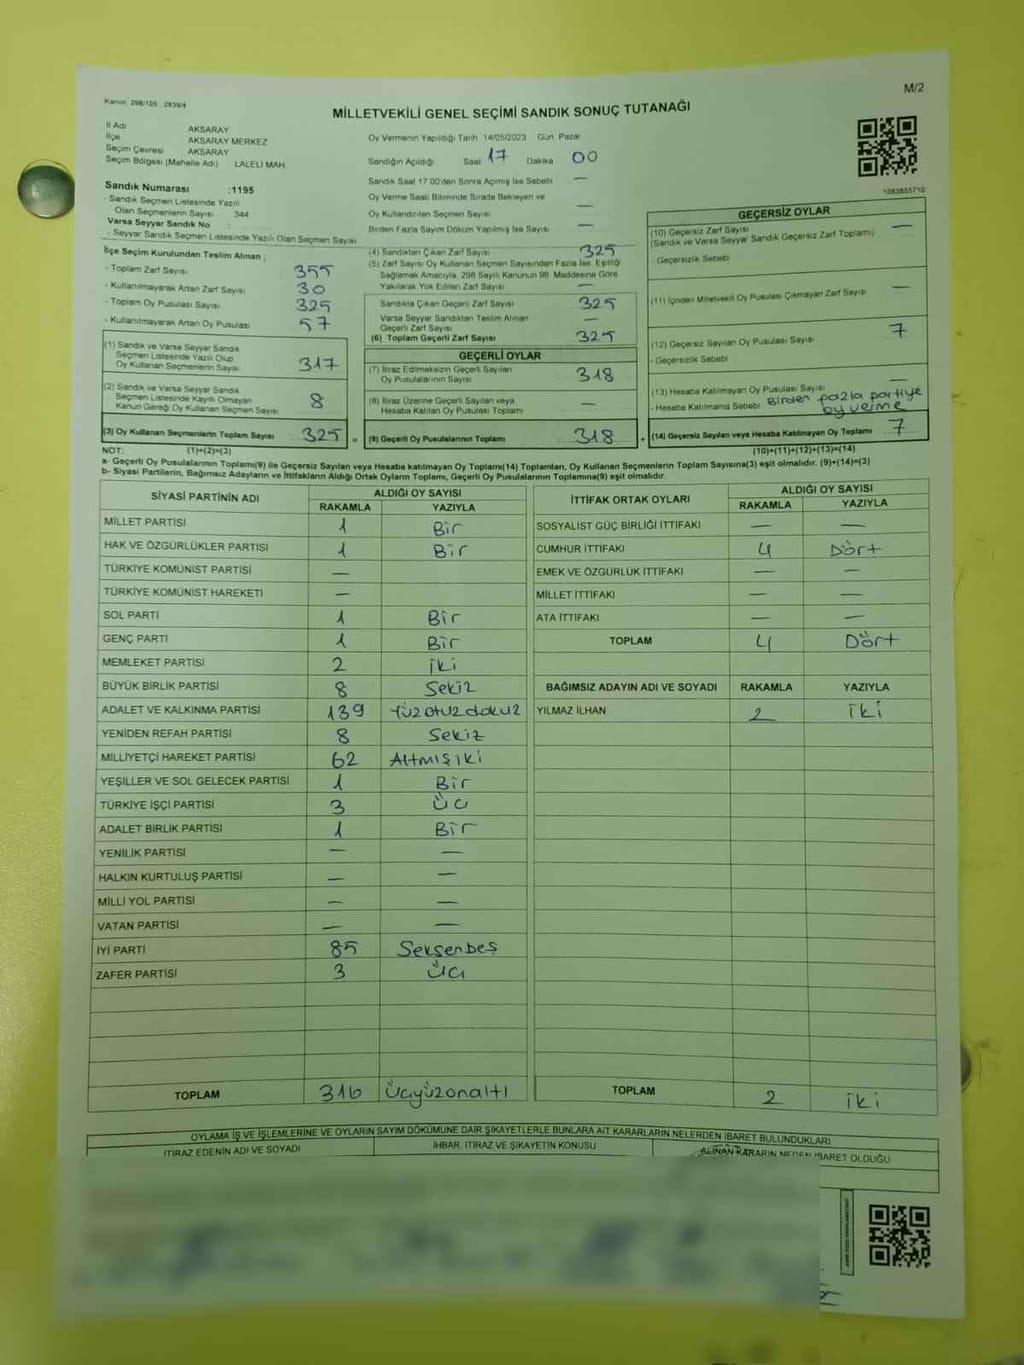 Kanun: 298/105 2839/4
M/2
MİLLETVEKİLİ GENEL SEÇİMİ SANDIK SONUÇ TUTANAĞI
İl Adı AKSARAY
İlçe AKSARAY MERKEZ
Seçim Çevresi AKSARAY
Seçim Bölgesi (Mahalle Adı) LALELİ MAH
Sandık Numarası :1195
- Sandık Seçmen Listesinde Yazılı
Olan Seçmenlerin Sayısı 344
Varsa Seyyar Sandık No
- Seyyar Sandık Seçmen Listesinde Yazılı Olan Seçmen Sayısı
Oy Vermenin Yapıldığı Tarih 14/05/2023 Gün Pazar
Sandığın Açıldığı Saat 17 Dakika 00
Sandık Saat 17 00'den Sonra Açılmış İse Sebebi —
Oy Verme Saati Bitiminde Sırada Bekleyen ve
Oy Kullandırılan Seçmen Sayısı —
Birden Fazla Sayım Döküm Yapılmış İse Sayısı —
1083655710
İlçe Seçim Kurulundan Teslim Alınan ;
- Toplam Zarf Sayısı 355
- Kullanılmayarak Artan Zarf Sayısı 30
- Toplam Oy Pusulası Sayısı 325
- Kullanılmayarak Artan Oy Pusulası 57
(1) Sandık ve Varsa Seyyar Sandık
Seçmen Listesinde Yazılı Olup
Oy Kullanan Seçmenlerin Sayısı 317
(2) Sandık ve Varsa Seyyar Sandık
Seçmen Listesinde Kayıtlı Olmayan
Kanun Gereği Oy Kullanan Seçmen Sayısı 8
(3) Oy Kullanan Seçmenlerin Toplam Sayısı 325 =
(4) Sandıktan Çıkan Zarf Sayısı 325
(5) Zarf Sayısı Oy Kullanan Seçmen Sayısından Fazla İse, Eşitliği
Sağlamak Amacıyla, 298 Sayılı Kanunun 98. Maddesine Göre
Yakılarak Yok Edilen Zarf Sayısı —
Sandıkta Çıkan Geçerli Zarf Sayısı 325
Varsa Seyyar Sandıktan Teslim Alınan
Geçerli Zarf Sayısı —
(6) Toplam Geçerli Zarf Sayısı 325
GEÇERLİ OYLAR
(7) İtiraz Edilmeksizin Geçerli Sayılan
Oy Pusulalarının Sayısı 318
(8) İtiraz Üzerine Geçerli Sayılan veya
Hesaba Katılan Oy Pusulası Toplamı —
(9) Geçerli Oy Pusulalarının Toplamı 318 +
GEÇERSİZ OYLAR
(10) Geçersiz Zarf Sayısı —
(Sandık ve Varsa Seyyar Sandık Geçersiz Zarf Toplamı)
- Geçersizlik Sebebi
(11) İçinden Milletvekili Oy Pusulası Çıkmayan Zarf Sayısı —
(12) Geçersiz Sayılan Oy Pusulası Sayısı 7
- Geçersizlik Sebebi
(13) Hesaba Katılmayan Oy Pusulası Sayısı —
- Hesaba Katılmama Sebebi Birden fazla partiye
oy verme
(14) Geçersiz Sayılan veya Hesaba Katılmayan Oy Toplamı 7
NOT: (1)+(2)=(3) (10)+(11)+(12)+(13)=(14)
a- Geçerli Oy Pusulalarının Toplamı(9) ile Geçersiz Sayılan veya Hesaba katılmayan Oy Toplamı(14) Toplamları, Oy Kullanan Seçmenlerin Toplam Sayısına(3) eşit olmalıdır. (9)+(14)=(3)
b- Siyasi Partilerin, Bağımsız Adayların ve İttifakların Aldığı Ortak Oyların Toplamı, Geçerli Oy Pusulalarının Toplamına(9) eşit olmalıdır.
SİYASİ PARTİNİN ADI ALDIĞI OY SAYISI
RAKAMLA YAZIYLA
MİLLET PARTİSİ 1 Bir
HAK VE ÖZGÜRLÜKLER PARTİSİ 1 Bir
TÜRKİYE KOMÜNİST PARTİSİ —
TÜRKİYE KOMÜNİST HAREKETİ —
SOL PARTİ 1 Bir
GENÇ PARTİ 1 Bir
MEMLEKET PARTİSİ 2 iki
BÜYÜK BİRLİK PARTİSİ 8 Sekiz
ADALET VE KALKINMA PARTİSİ 139 Yüzotuzdokuz
YENİDEN REFAH PARTİSİ 8 Sekiz
MİLLİYETÇİ HAREKET PARTİSİ 62 Altmışiki
YEŞİLLER VE SOL GELECEK PARTİSİ 1 Bir
TÜRKİYE İŞÇİ PARTİSİ 3 Üç
ADALET BİRLİK PARTİSİ 1 Bir
YENİLİK PARTİSİ — —
HALKIN KURTULUŞ PARTİSİ — —
MİLLİ YOL PARTİSİ — —
VATAN PARTİSİ — —
İYİ PARTİ 85 Seksenbeş
ZAFER PARTİSİ 3 Üç
TOPLAM 316 Üçyüzonaltı
İTTİFAK ORTAK OYLARI ALDIĞI OY SAYISI
RAKAMLA YAZIYLA
SOSYALİST GÜÇ BİRLİĞİ İTTİFAKI — —
CUMHUR İTTİFAKI 4 Dört
EMEK VE ÖZGÜRLÜK İTTİFAKI — —
MİLLET İTTİFAKI — —
ATA İTTİFAKI — —
TOPLAM 4 Dört
BAĞIMSIZ ADAYIN ADI VE SOYADI RAKAMLA YAZIYLA
YILMAZ İLHAN 2 iki
TOPLAM 2 iki
OYLAMA İŞ VE İŞLEMLERİNE VE OYLARIN SAYIM DÖKÜMÜNE DAİR ŞİKAYETLERLE BUNLARA AİT KARARLARIN NELERDEN İBARET BULUNDUKLARI
İTİRAZ EDENİN ADI VE SOYADI İHBAR, İTİRAZ VE ŞİKAYETİN KONUSU ALINAN KARARIN NEDEN İBARET OLDUĞU